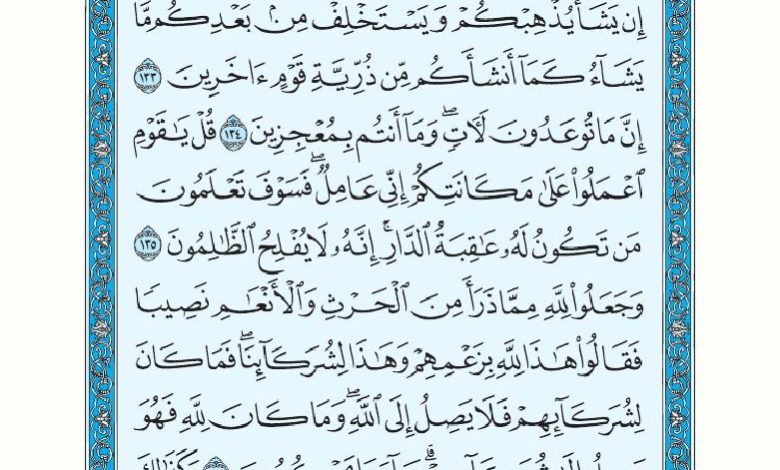 إِن يَشَأْ يُذْهِبْكُمْ وَيَسْتَخْلِفْ مِنۢ بَعْدِكُم مَّا
يَشَآءُ كَمَآ أَنشَأَكُم مِّن ذُرِّيَّةِ قَوْمٍ ءَاخَرِينَ ١٣٣
إِنَّ مَا تُوعَدُونَ لَءَاتٍۖ وَمَآ أَنتُم بِمُعْجِزِينَ ١٣٤ قُلْ يَٰقَوْمِ
ٱعْمَلُوا۟ عَلَىٰ مَكَانَتِكُمْ إِنِّى عَامِلٌۖ فَسَوْفَ تَعْلَمُونَ
مَن تَكُونُ لَهُۥ عَٰقِبَةُ ٱلدَّارِۚ إِنَّهُۥ لَا يُفْلِحُ ٱلظَّٰلِمُونَ ١٣٥
وَجَعَلُوا۟ لِلَّهِ مِمَّا ذَرَأَ مِنَ ٱلْحَرْثِ وَٱلْأَنْعَٰمِ نَصِيبًا
فَقَالُوا۟ هَٰذَا لِلَّهِ بِزَعْمِهِمْ وَهَٰذَا لِشُرَكَآئِنَاۖ فَمَا كَانَ
لِشُرَكَآئِهِمْ فَلَا يَصِلُ إِلَى ٱللَّهِۖ وَمَا كَانَ لِلَّهِ فَهُوَ